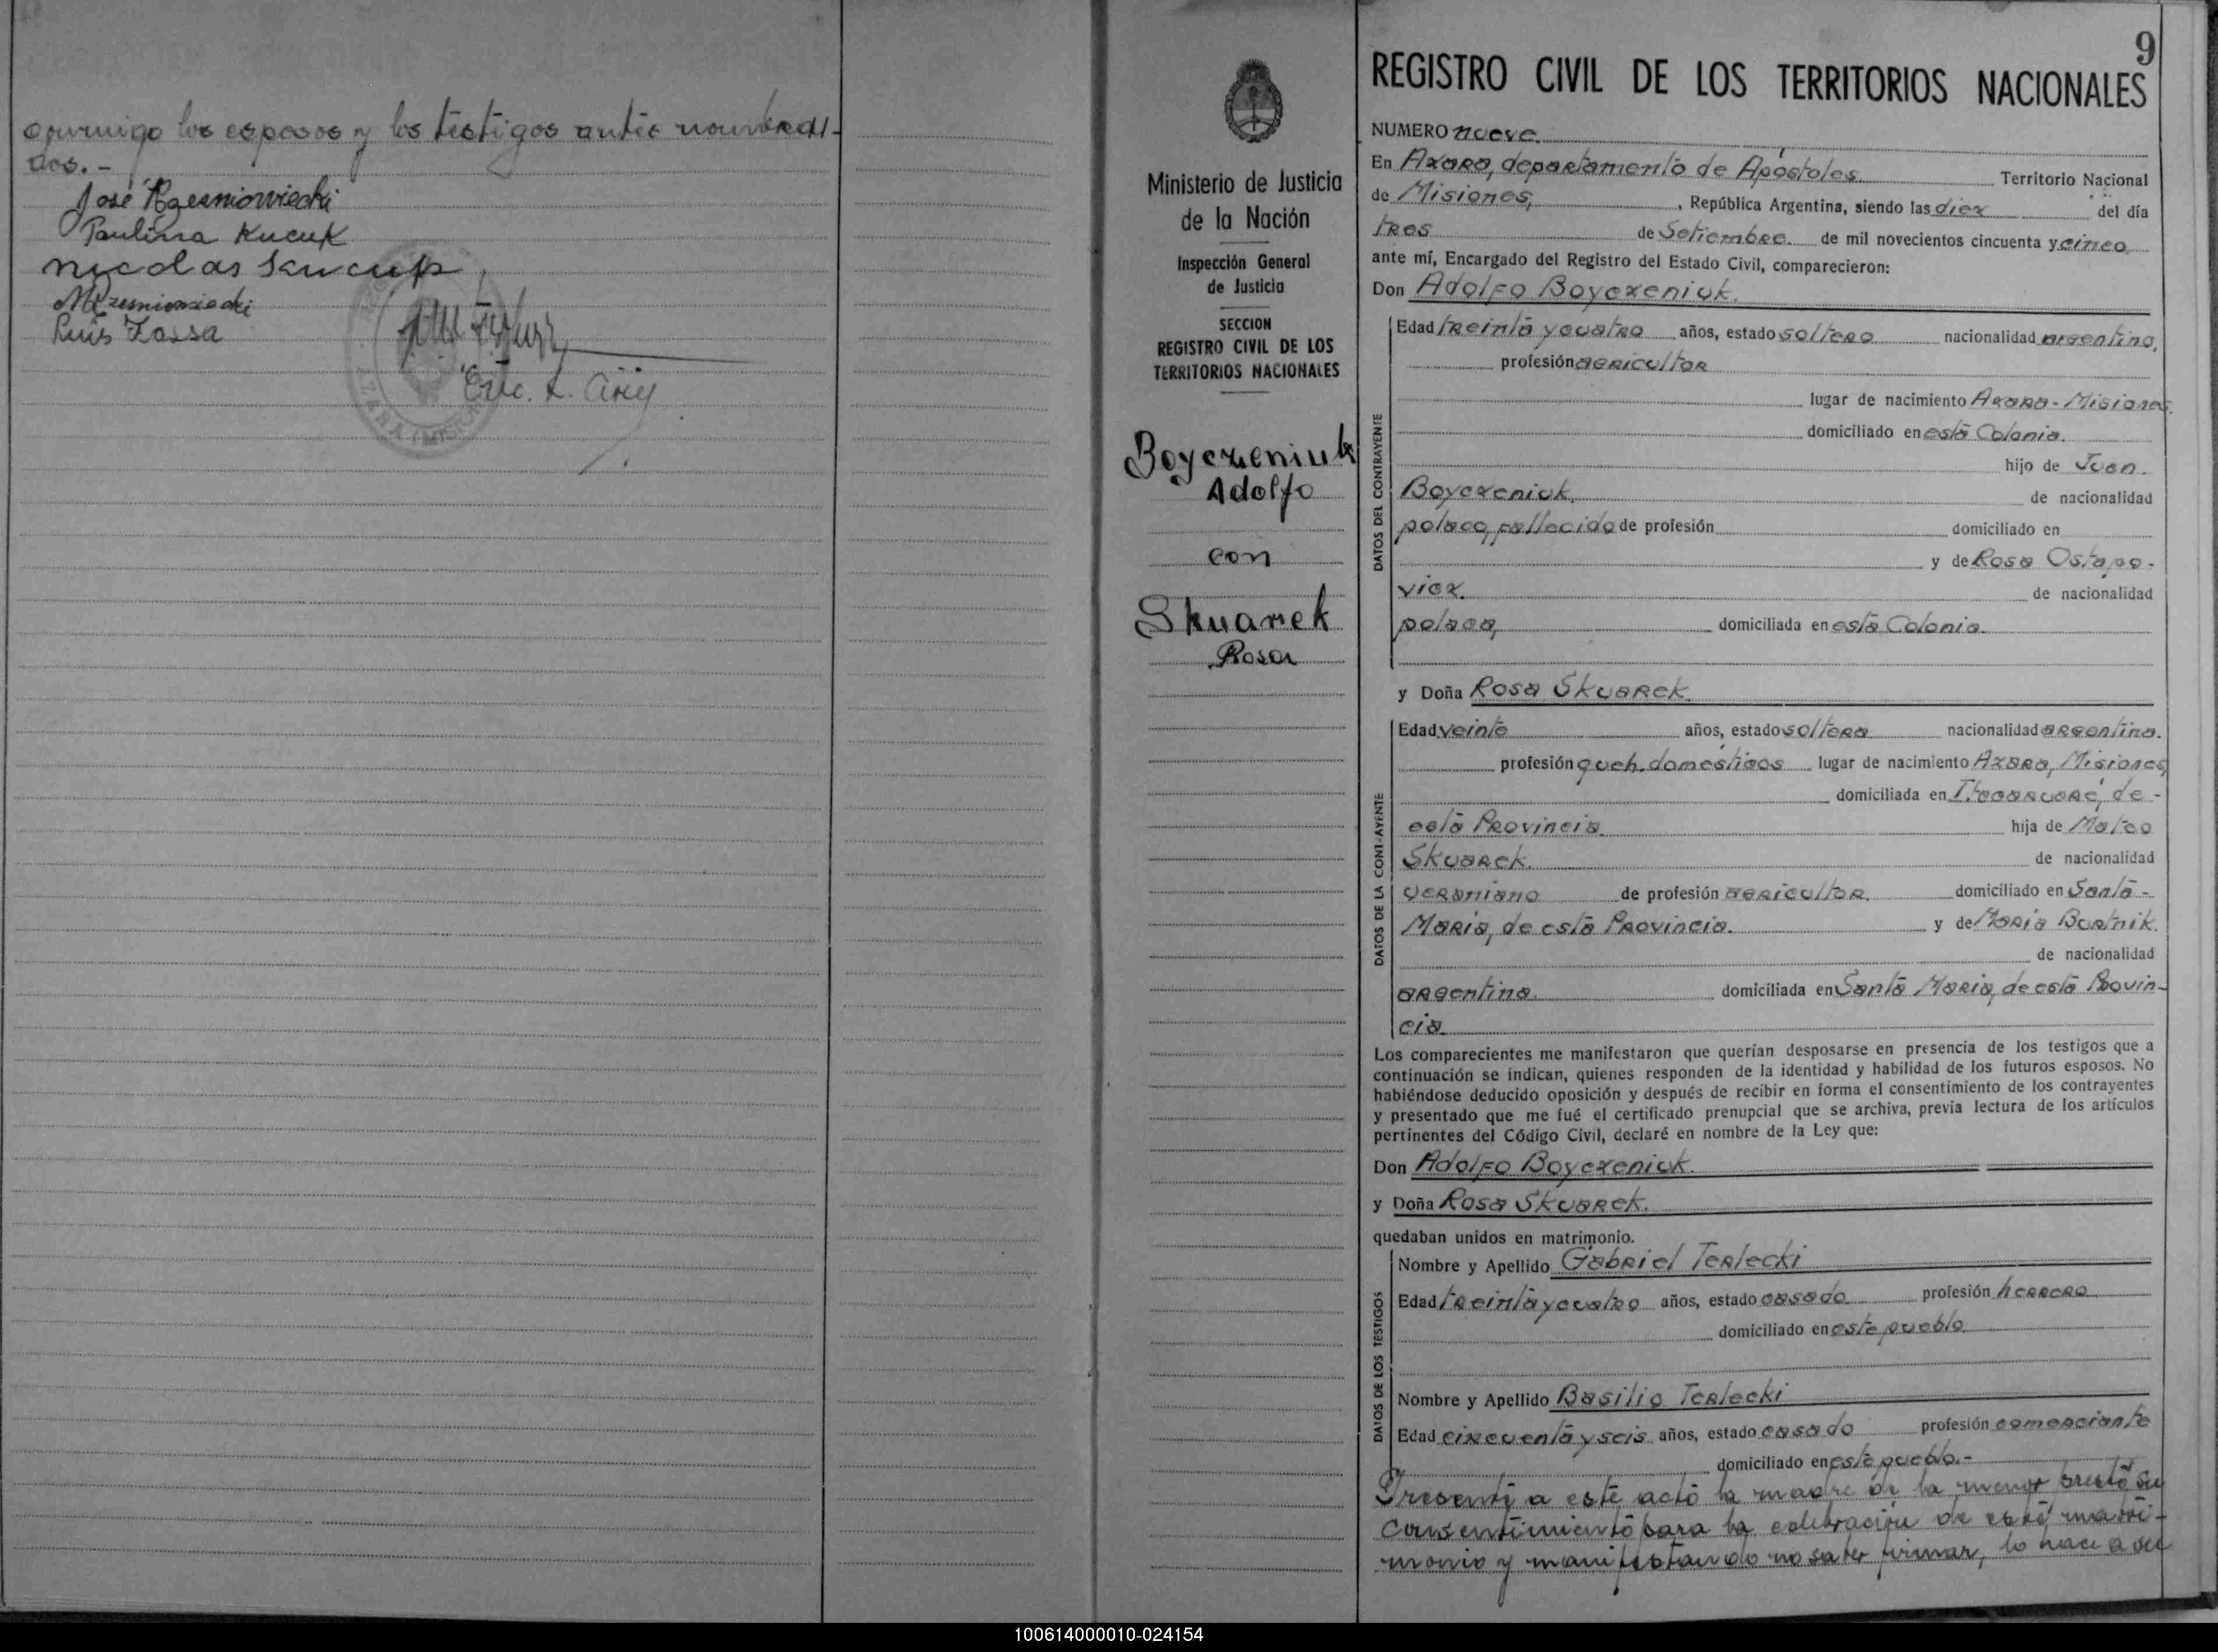 conmigo los esposos y los testigos antes nombra-
dos.-
José Rzesniowiecki
Paulina Kucuk
nicolas
MRzesniowiecki
Luis Zassa
Enc. R. Civ
AZARA (MISIONES)
Ministerio de Justicia
de la Nación
Inspección General
de Justicia
SECCION
REGISTRO CIVIL DE LOS
TERRITORIOS NACIONALES
Boyczeniuk
Adolfo
con
Skuarek
Rosa
9
REGISTRO CIVIL DE LOS TERRITORIOS NACIONALES
NUMERO nueve.
En Azara, departamento de Apóstoles Territorio Nacional
de Misiones, , República Argentina, siendo las diez del día
tres de Setiembre de mil novecientos cincuenta y cinco
ante mí, Encargado del Registro del Estado Civil, comparecieron:
Don Adolfo Boyczeniuk.
DATOS DEL CONTRAYENTE
Edad treinta y cuatro años, estado soltero nacionalidad argentino,
profesión agricultor
lugar de nacimiento Azara - Misiones.
domiciliado en esta Colonia.
hijo de Juan.
Boyczeniuk. de nacionalidad
polaco, fallecido de profesión domiciliado en
y de Rosa Ostapo-
vicz. de nacionalidad
polaca, domiciliada en esta Colonia.
y Doña Rosa Skuarek.
DATOS DE LA CONTRAYENTE
Edad veinte años, estado soltera nacionalidad argentina.
profesión queh. domésticos lugar de nacimiento Azara, Misiones,
domiciliada en Tbacararé, de-
esta Provincia. hija de Mateo
Skuarek. de nacionalidad
ucraniano de profesión agricultor. domiciliado en Santa-
Maria, de esta Provincia. y de Maria Bortnik.
de nacionalidad
argentina. domiciliada en Santa Maria, de esta Provin-
cia
Los comparecientes me manifestaron que querían desposarse en presencia de los testigos que a
continuación se indican, quienes responden de la identidad y habilidad de los futuros esposos. No
habiéndose deducido oposición y después de recibir en forma el consentimiento de los contrayentes
y presentado que me fué el certificado prenupcial que se archiva, previa lectura de los artículos
pertinentes del Código Civil, declaré en nombre de la Ley que:
Don Adolfo Boyczeniuk.
y Doña Rosa Skuarek.
quedaban unidos en matrimonio.
DATOS DE LOS TESTIGOS
Nombre y Apellido Gabriel Terlecki
Edad treinta y cuatro años, estado casado profesión herrero
domiciliado en este pueblo
Nombre y Apellido Basilio Terlecki
Edad cincuenta y seis años, estado casado profesión comerciante
domiciliado en este pueblo.-
Presente a este acto la madre de la menor prestó su
consentimiento para la celebración de este matri-
monio y manifestando no saber firmar, lo hace a su
100614000010-024154